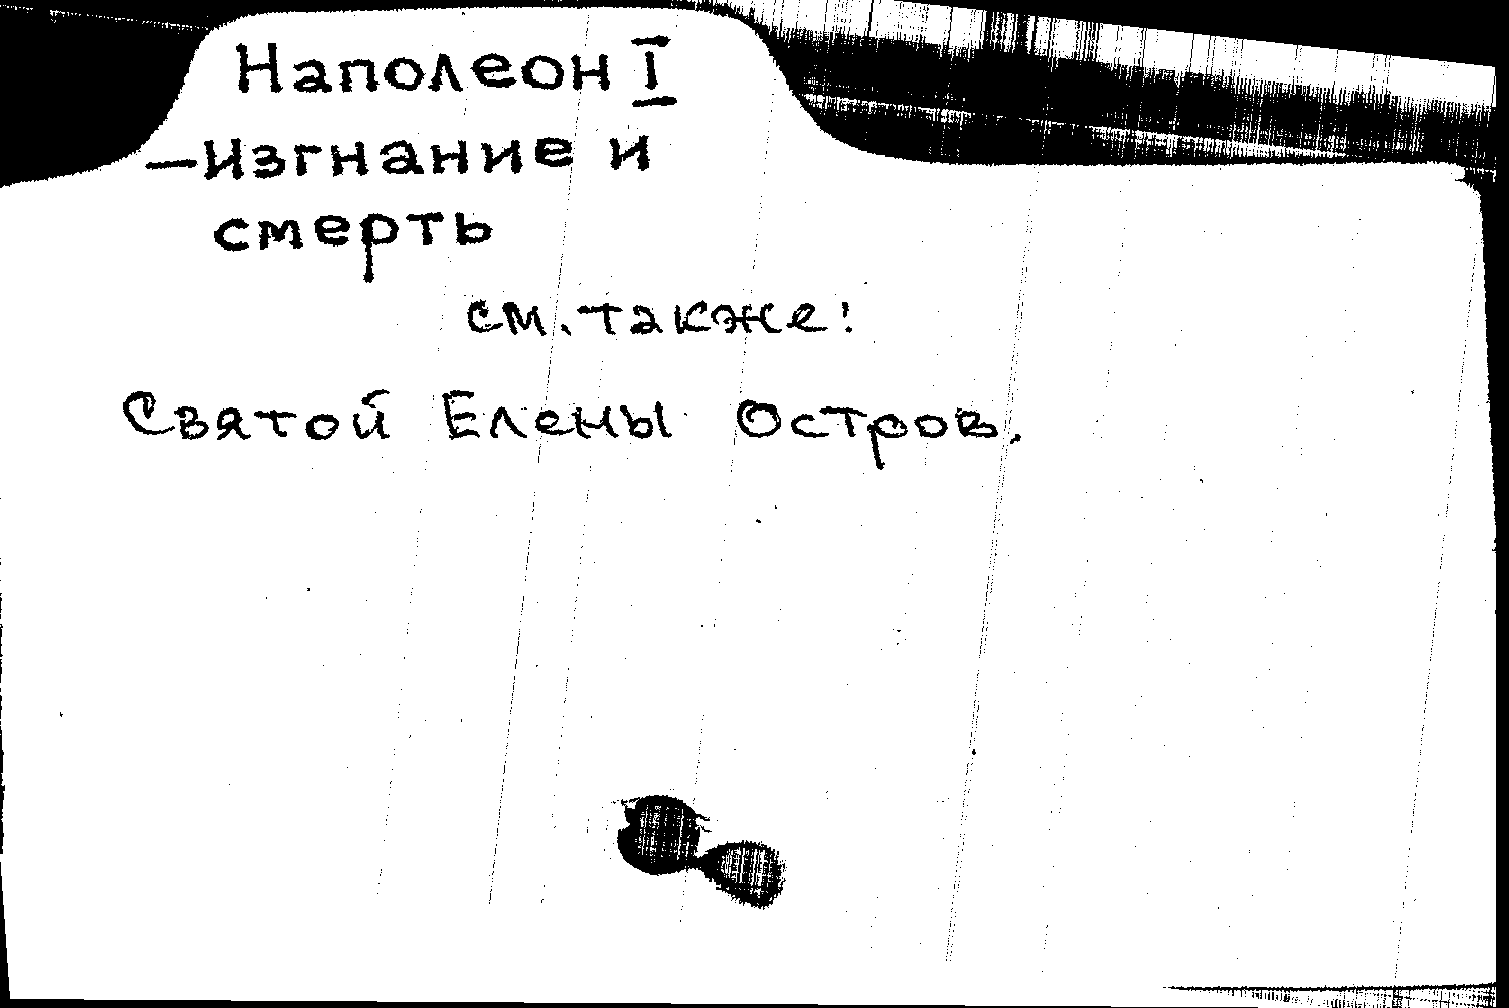 Наполеон I
—Изгнание и
смерть
см. также:
Святой Елены Остров.